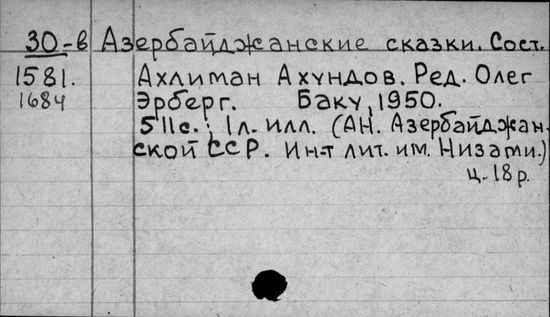 30-в Азербайджанские сказки. Сост.
1581. Ахлиман Ахундов. Ред. Олег
1684 Эрберг. Баку, 1950.
511с.; 1л. илл. (АН. Азербайджан-
ской ССР. Ин-т лит. им. Низами.)
ц. 18р.